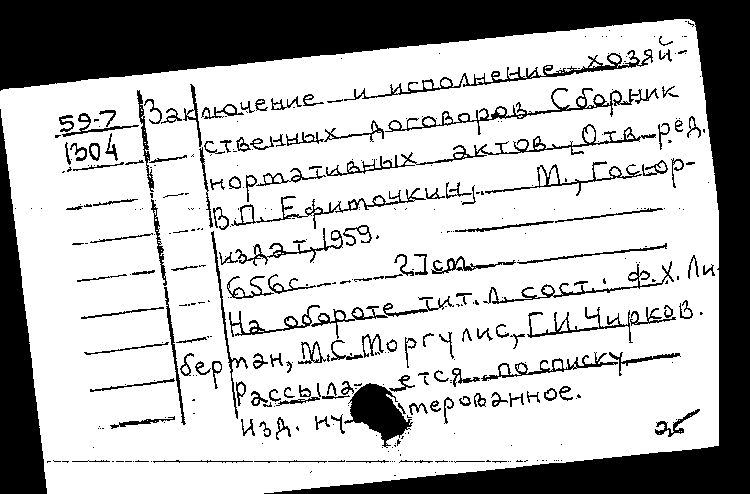 59-7
1304
Заключение и исполнение хозяй-
ственных договоров. Сборник
нормативных актов. [Отв. ред.
В.П. Ефиточкин]. М., Госюр-
издат, 1959.
656с. 27см.
На обороте тит. л. сост.: Ф.Х. Ли-
берман, М.С. Моргулис, Г.И. Чирков.
Рассылается по списку
Изд. ну мерованное.